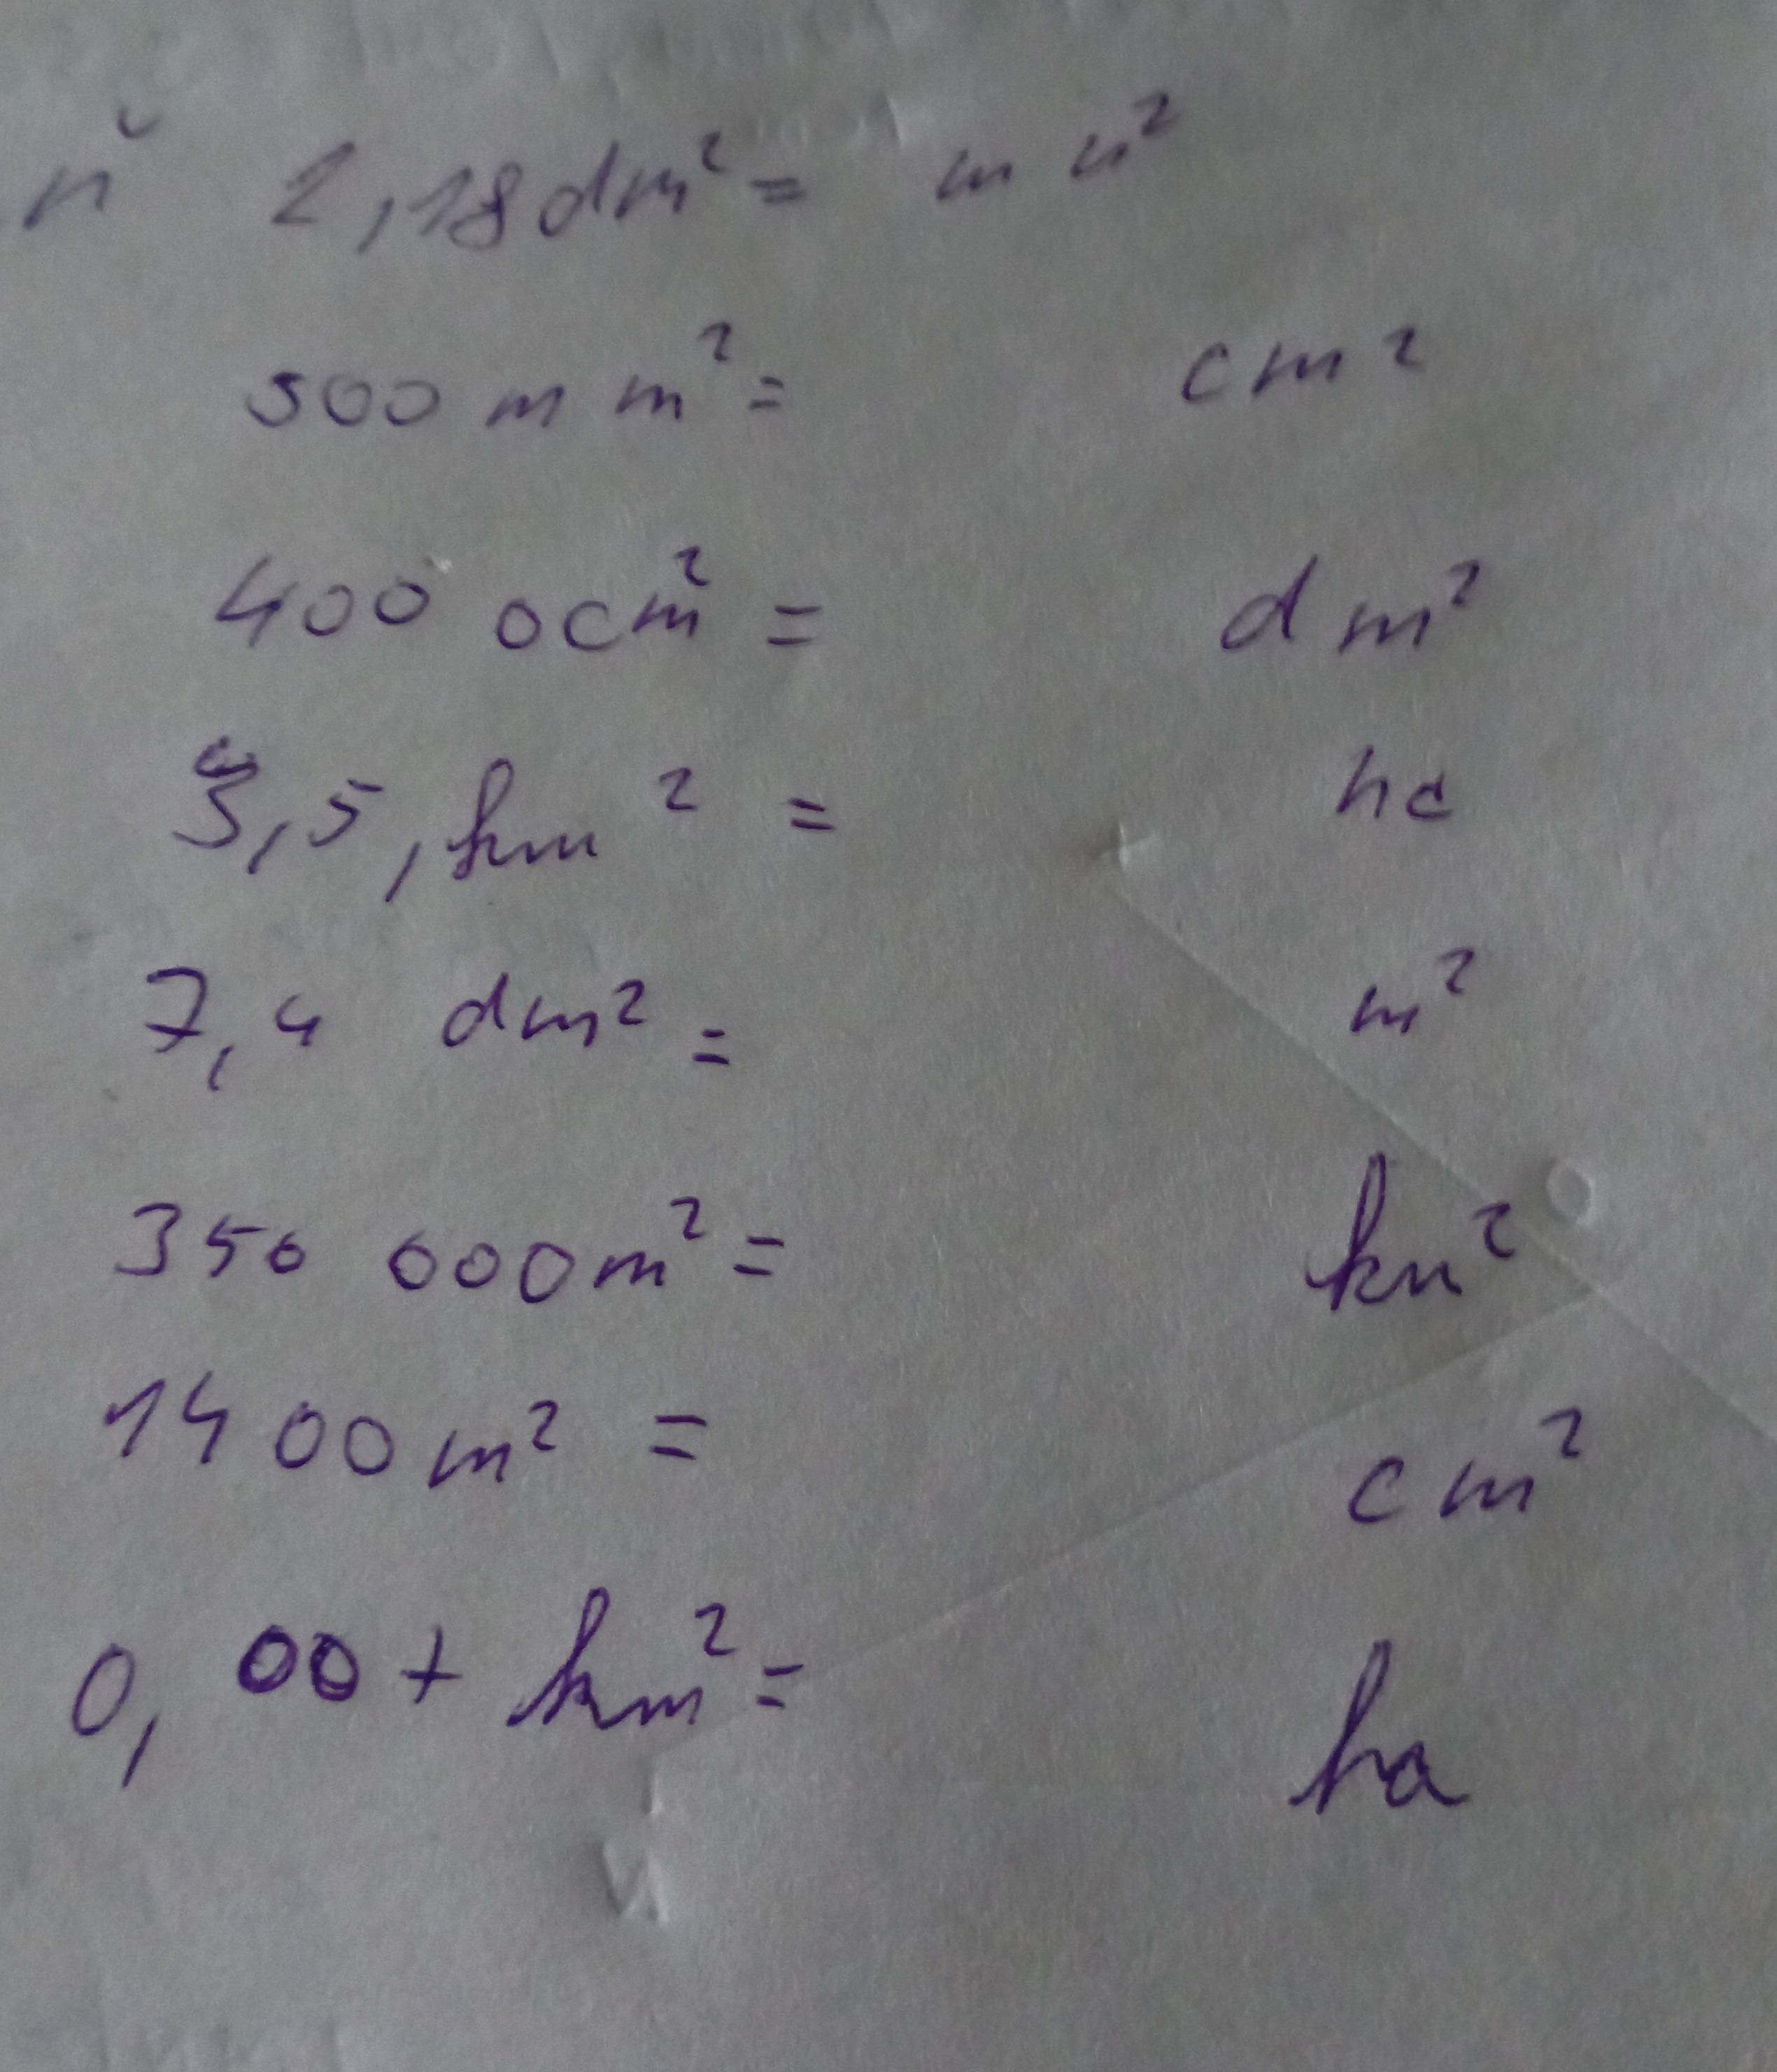 ň 2,18dm²= mm²
500 mm²= cm²
400 0cm² = dm²
3,5, km² = ha
7,4 dm² = m²
350 000m² = km²
1400m² = cm²
0,00+ km² = ha